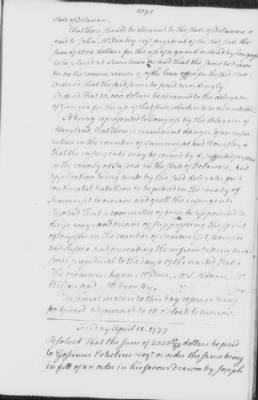 1095
State of Delaware.
That there should be advanced to the State of Delaware &
paid to John McKinley esqr. president of the said State the
sum of 5000 dollars for the use of a guard ordered by Congress
to be placed at and that the same be drawn
for on the commissioner of the loan office for the said State.
Ordered That the said sum be paid accordingly.
Ordered That 20,000 dollars be advanced to the delegates
of Georgia for the use of that State which is to be accountable
It being represented to Congress by the delegates of
Maryland, that there is imminent danger of an insur-
rection in the counties of Somerset and Worcester, &
that the insurgents may be joined by disaffected persons
in the county of Sussex in the State of Delaware, and
application being made by the said delegates for a
continental battalion to be placed in the county of
Somerset to overawe and quell the insurgents
Resolved That a committee of three be appointed to
devise ways and means of suppressing the spirit
of toryism in the counties of Somerset, Worcester
and Sussex and preventing them from taking mea-
sures prejudicial to the cause of the united States
The members chosen, Mr. S. Adams, Mr
Wilson and
The several matters to this day referred being
postponed adjourned to 10 o'clock to morrow.
Friday April 18. 1777
Resolved That the sum of dollars be paid
to Gosuinus Erkelens esqr. or order the same being
in full of an order in his favour drawn by Joseph